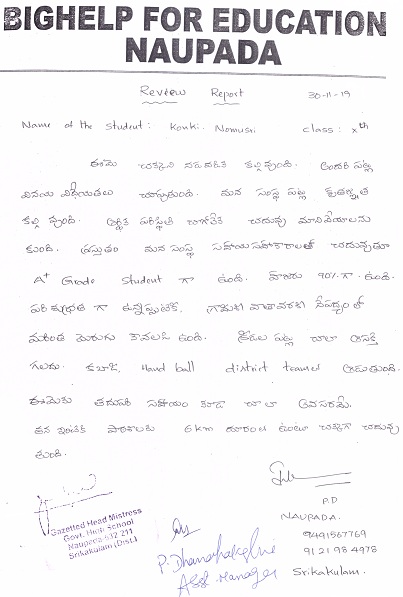 BIGHELP FOR EDUCATION
NAUPADA
Review Report 30-11-19
Name of the Student : Konki. Nomusri class : Xth
ఈమె చక్కని నడవడిక కల్గి వుంది. అందరి పట్ల
వినయ విధేయతలు చూపుతుంది. మన సంస్థ పట్ల కృతజ్ఞత
కల్గి వుంది. ఆర్థిక పరిస్థితి బాగోలేక చదువు మానివేయాలను
కుంది. ప్రస్తుతం మన సంస్థ సహాయసహకారాలతో చదువుతూ
A+ Grade Student గా ఉంది. హాజరు 90% గా ఉంది.
పరిశుభ్రత గా ఉన్నప్పటికి. గ్రామీణ వాతావరణ నేపథ్యంతో
మరింత మెరుగు కావలసి ఉంది. క్రీడల పట్ల చాలా ఆసక్తి
గలదు. కబాడి, Hand ball district teamలో ఆడుతుంది.
ఈమెకు తదుపరి సహాయం కూడా చాలా అవసరమే.
తన ఇంటికి పాఠశాలకు 6 km దూరంల ఉంటూ చక్కగా చదువు
తుంది.
Gazetted Head Mistress
Govt. High School
Naupada-532 211
Srikakulam (Dist.)
P.D
NAUPADA.
9491567769
91 21 98 4978
Srikakulam.
Asst. Manager